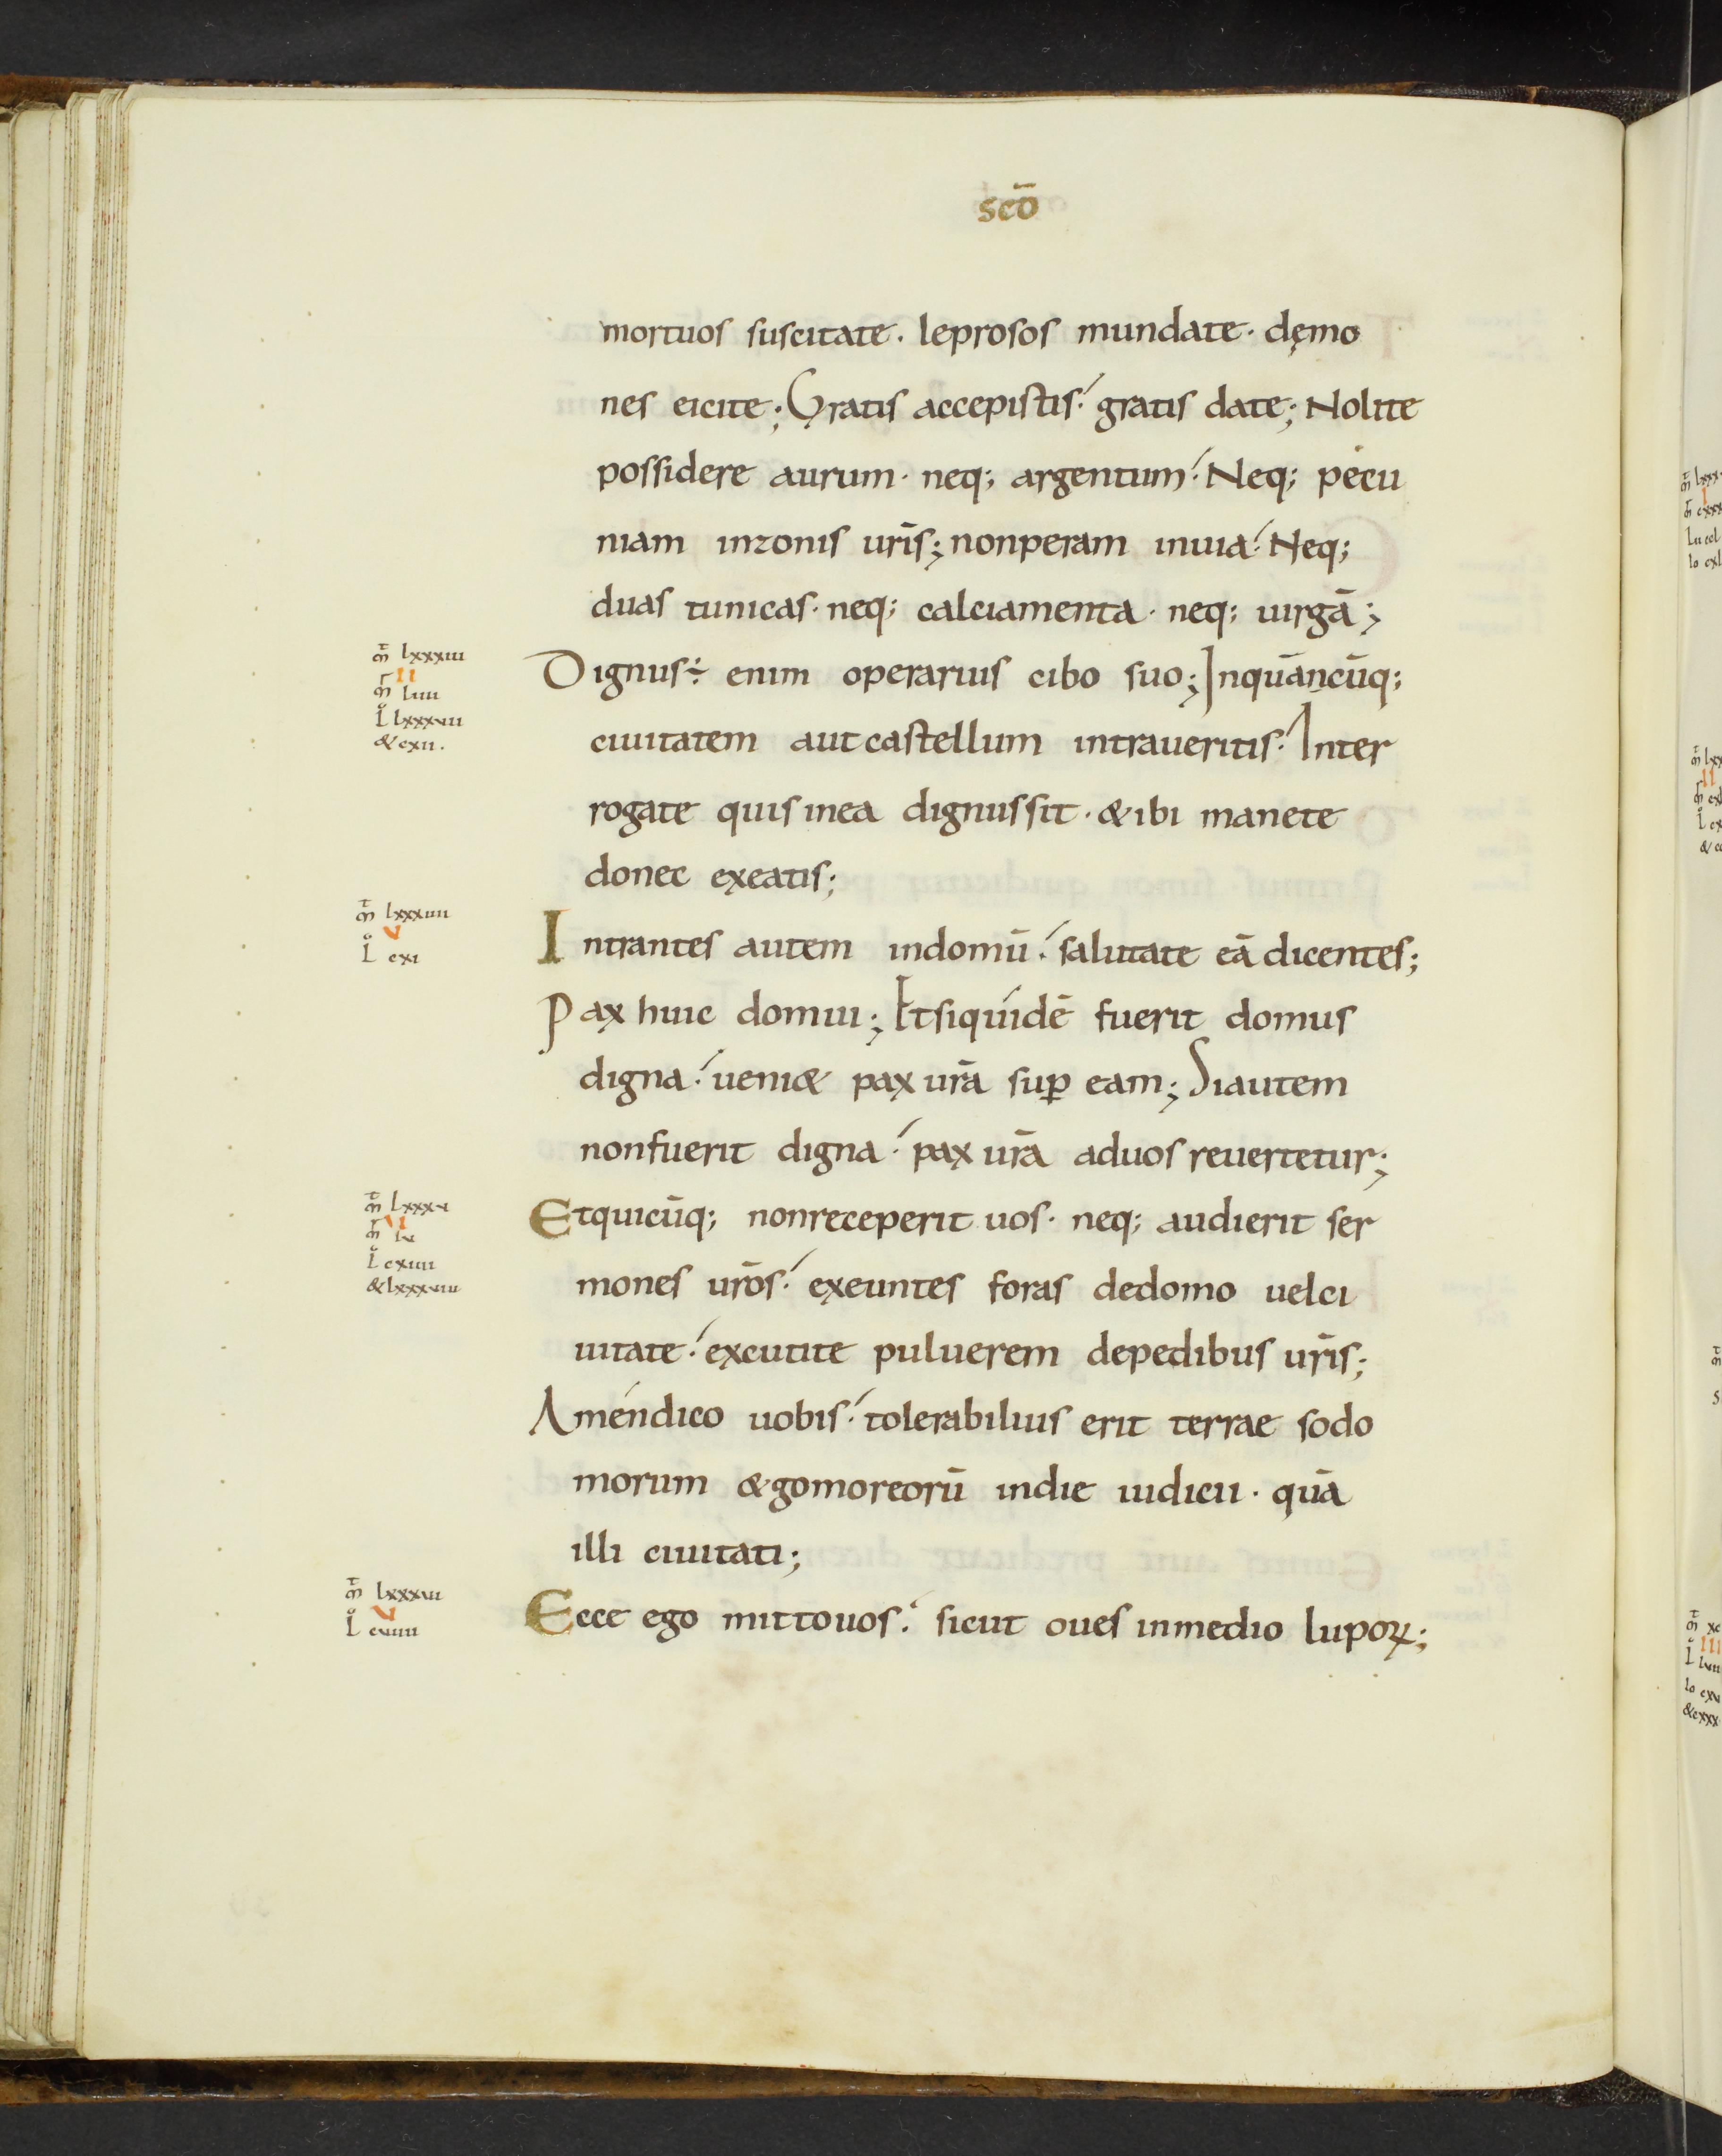 scō
mortuos suscitate · leprosos mundate · dęmo
nes eicite; Gratis accepistis · gratis date; Nolite
possidere aurum · neq; argentum · Neq; pecu
niam inzonis ur̄is; nonperam inuia · Neq;
duas tunicas · neq; calciamenta · neq; uirgā;
m̄ lxxxiii
II
m̄ liiii
L lxxxviii
& cxii.
Dignus ÷ enim operarius cibo suo; Inquāncūq;
ciuitatem autcastellum intraueritis · Inter
rogate quis inea dignussit · & ibi manete
donec exeatis;
m̄ lxxxiiii
V
L cxi
Intrantes autem indomū · salutate eā dicentes;
Pax huic domui; Etsiquidē fuerit domus
digna · ueni& pax ur̄a sup̄ eam; Siautem
nonfuerit digna · pax ur̄a aduos reuertetur;
m̄ lxxxv
II
m̄ lv
L cxiiii
& lxxxviii
Etquicūq; nonreceperit uos · neq; audierit ser
mones ur̄os · exeuntes foras dedomo uelci
uitate · excutite puluerem depedibus ur̄is;
Améndico uobis · tolerabilius erit terrae sodo
morum & gomoreorū indie iudicii · quā
illi ciuitati;
m̄ lxxxvi
V
L cviiii
Ecce ego mittouos · sicut oues inmedio lupoꝝ;